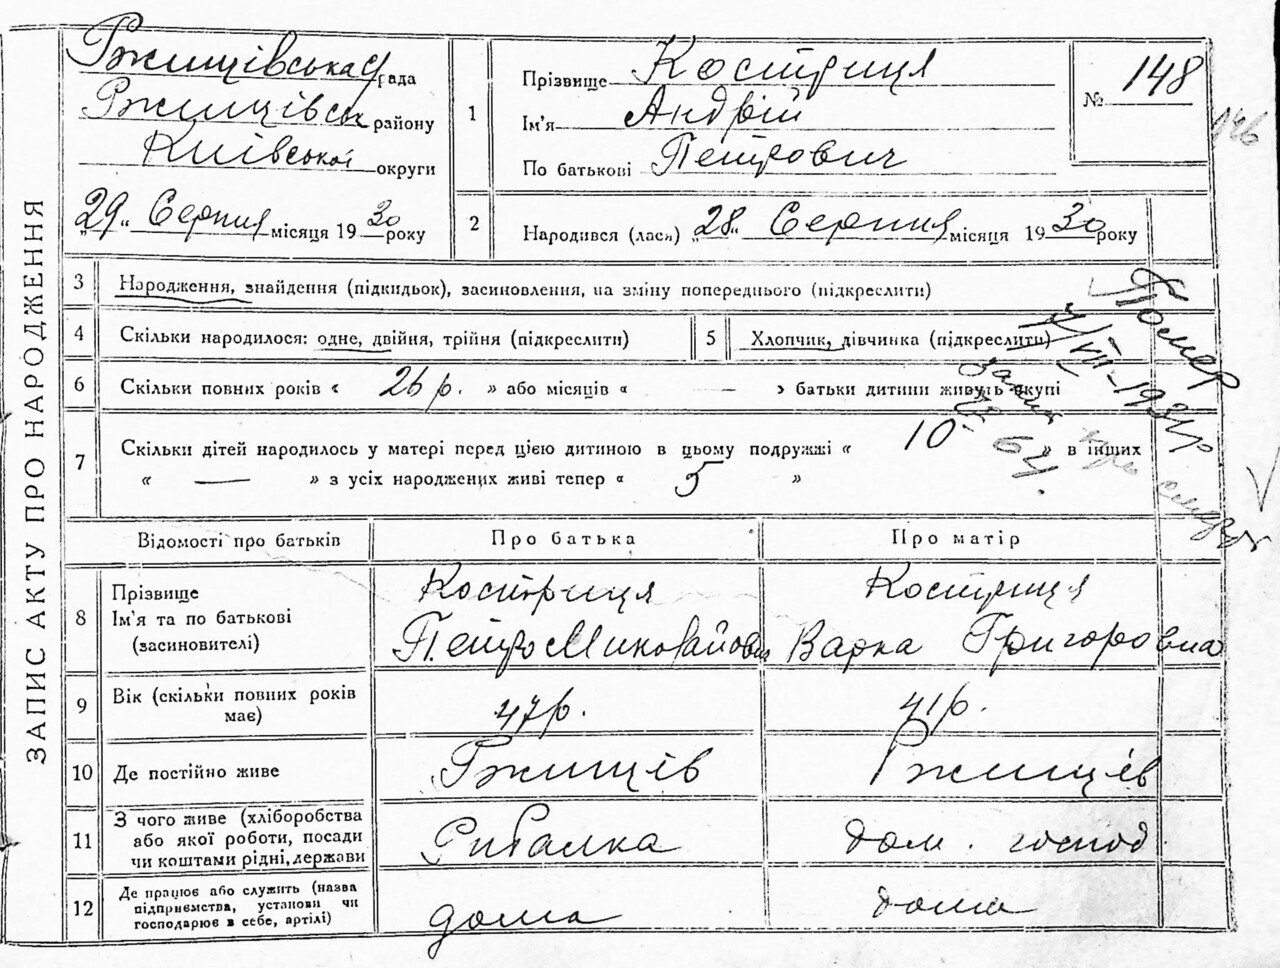 ЗАПИС АКТУ ПРО НАРОДЖЕННЯ
Ржищівська рада
Ржищівськ району
Київської округи
„29" Серпня місяця 1930 року
1
Прізвище Костриця
Ім'я Андрій
По батькові Петрович
№ 148
146
2
Народився (лася) „28" Серпня місяця 1930 року
3 Народження, знайдення (підкидьок), засиновлення, на зміну попереднього (підкреслити)
4 Скільки народилося: одне, двійня, трійня (підкреслити)
5 Хлопчик, дівчинка (підкреслити)
6 Скільки повних років « 26 р. » або місяців « — » батьки дитини живуть вкупі
7 Скільки дітей народилось у матері перед цією дитиною в цьому подружжі « 10 » в інших
« — » з усіх народжених живі тепер « 5 »
Помер
7/VII-1931р.
№ 64
Відомості про батьків Про батька Про матір
8 Прізвище Костриця Костриця
Ім'я та по батькові Петро Миколайович Варка Григоровна
(засиновителі)
9 Вік (скільки повних років має) 47 р. 41 р.
10 Де постійно живе Ржищів Ржищів
11 З чого живе (хліборобства
або якої роботи, посади Рибалка дом. господ.
чи коштами рідні, держави
12 Де працює або служить (назва
підприємства, установи чи дома дома
господарює в себе, артілі)